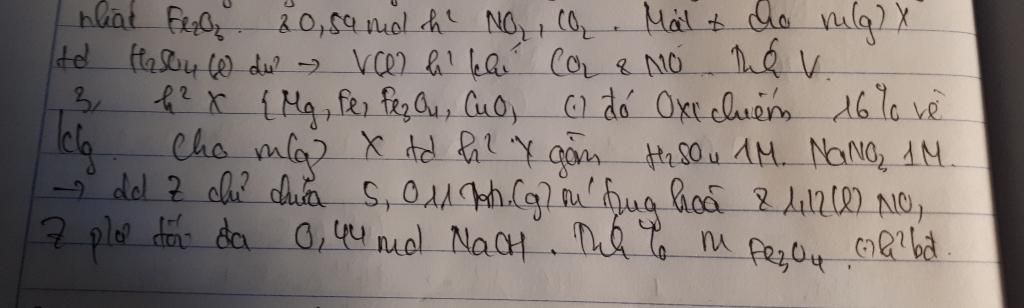 nhất Fe2O3. & 0,54 mol h² NO2, CO2. Mặt ≠ cho m(g) X
td H2SO4 (l) dư → V(l) h² khí CO2 & NO. V.
3, h² X {Mg, Fe, Fe3O4, CuO, (:) đó Oxi chiếm 16% về
klg. Cho m(g) X td h² Y gồm H2SO4 1M. NaNO3 1M.
→ dd Z chỉ chứa m(g) m' trung hoà & 1,12(l) NO,
Z pứ tối đa 0,44 mol NaOH. % m Fe3O4 (:) h² bđ.